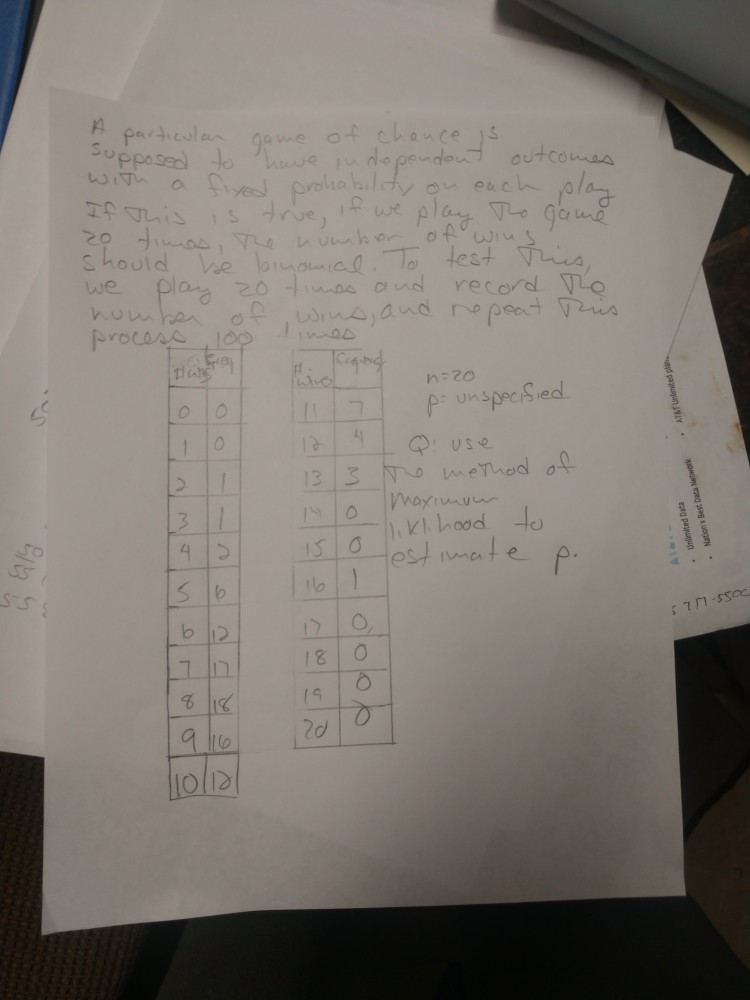 A particular game of chance is
supposed to have independent outcomes
with a fixed probability on each play
If this is true, if we play the game
20 times, the number of wins
should be binomial. To test this,
we play 20 times and record the
number of wins, and repeat this
process 100 times
# wins Freq
0 0
1 0
2 1
3 1
4 2
5 6
6 12
7 17
8 18
9 16
10 12
# wins
11 7
12 4
13 3
14 0
15 0
16 1
17 0
18 0
19 0
20 0
n=20
p= unspecified
Q: use
the method of
maximum
liklihood to
estimate p.
Unlimited Data
Nation's Best Data Network
AT&T Unlimited plan